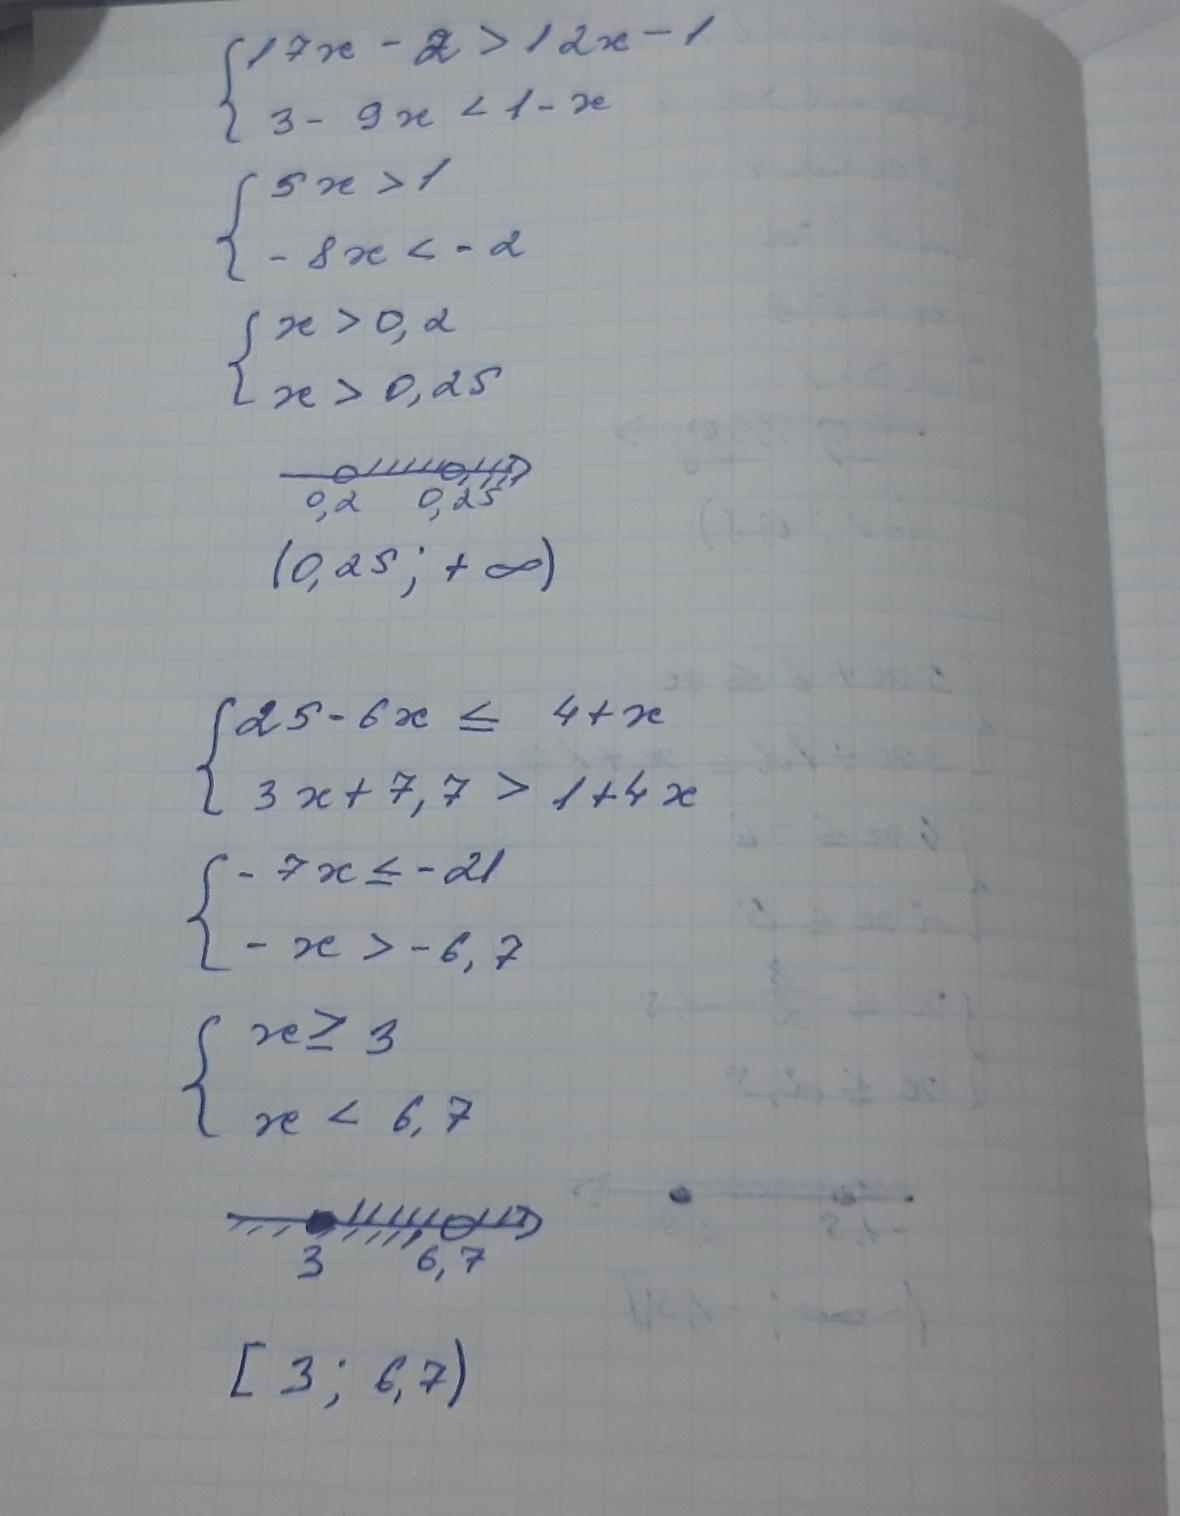 { 17x - 2 > 12x - 1
3 - 9x < 1 - x
{ 5x > 1
- 8x < - 2
{ x > 0,2
x > 0,25
0,2 0,25
(0,25; + ∞)
{ 25 - 6x ≤ 4 + x
3x + 7,7 > 1 + 4x
{ - 7x ≤ - 21
- x > - 6,7
{ x ≥ 3
x < 6,7
3 6,7
[ 3; 6,7)